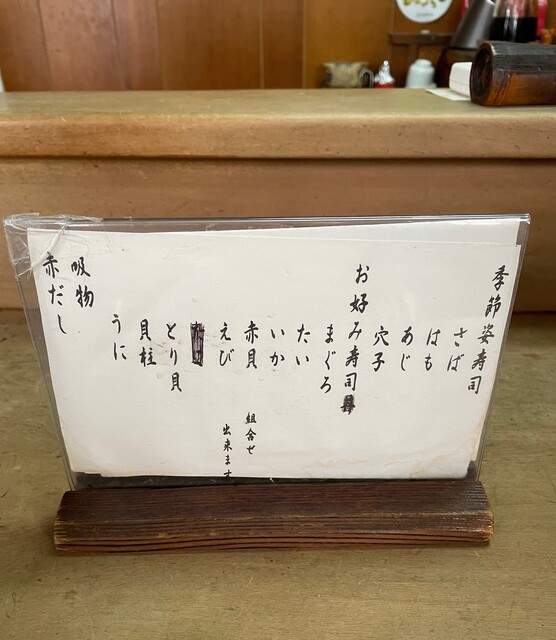 季節姿寿司
さば
はも
あじ
穴子
お好み寿司
まぐろ
たい
いか
赤貝
組合せ
出来ます
えび
とり貝
貝柱
うに
吸物
赤だし